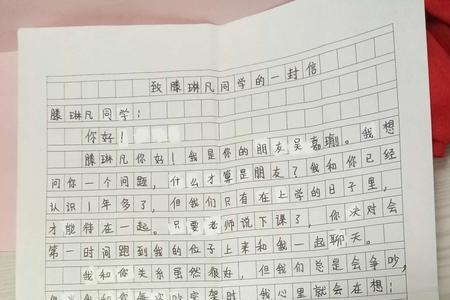 致滕琳凡同学的一封信
滕琳凡同学：
你好！
滕琳凡你好！我是你的朋友吴嘉瑜。我想
问你一个问题，什么才算是朋友？我和你已经
认识1年多了，但我们只有在上学的日子里，
才能待在一起。只要老师说下课了，你决对会
第一时间跑到我的位子上来和我一起聊天。
我和你关系虽然很好，但我们总是会争吵，
我和你每次吵完架时，我心里就会在想：